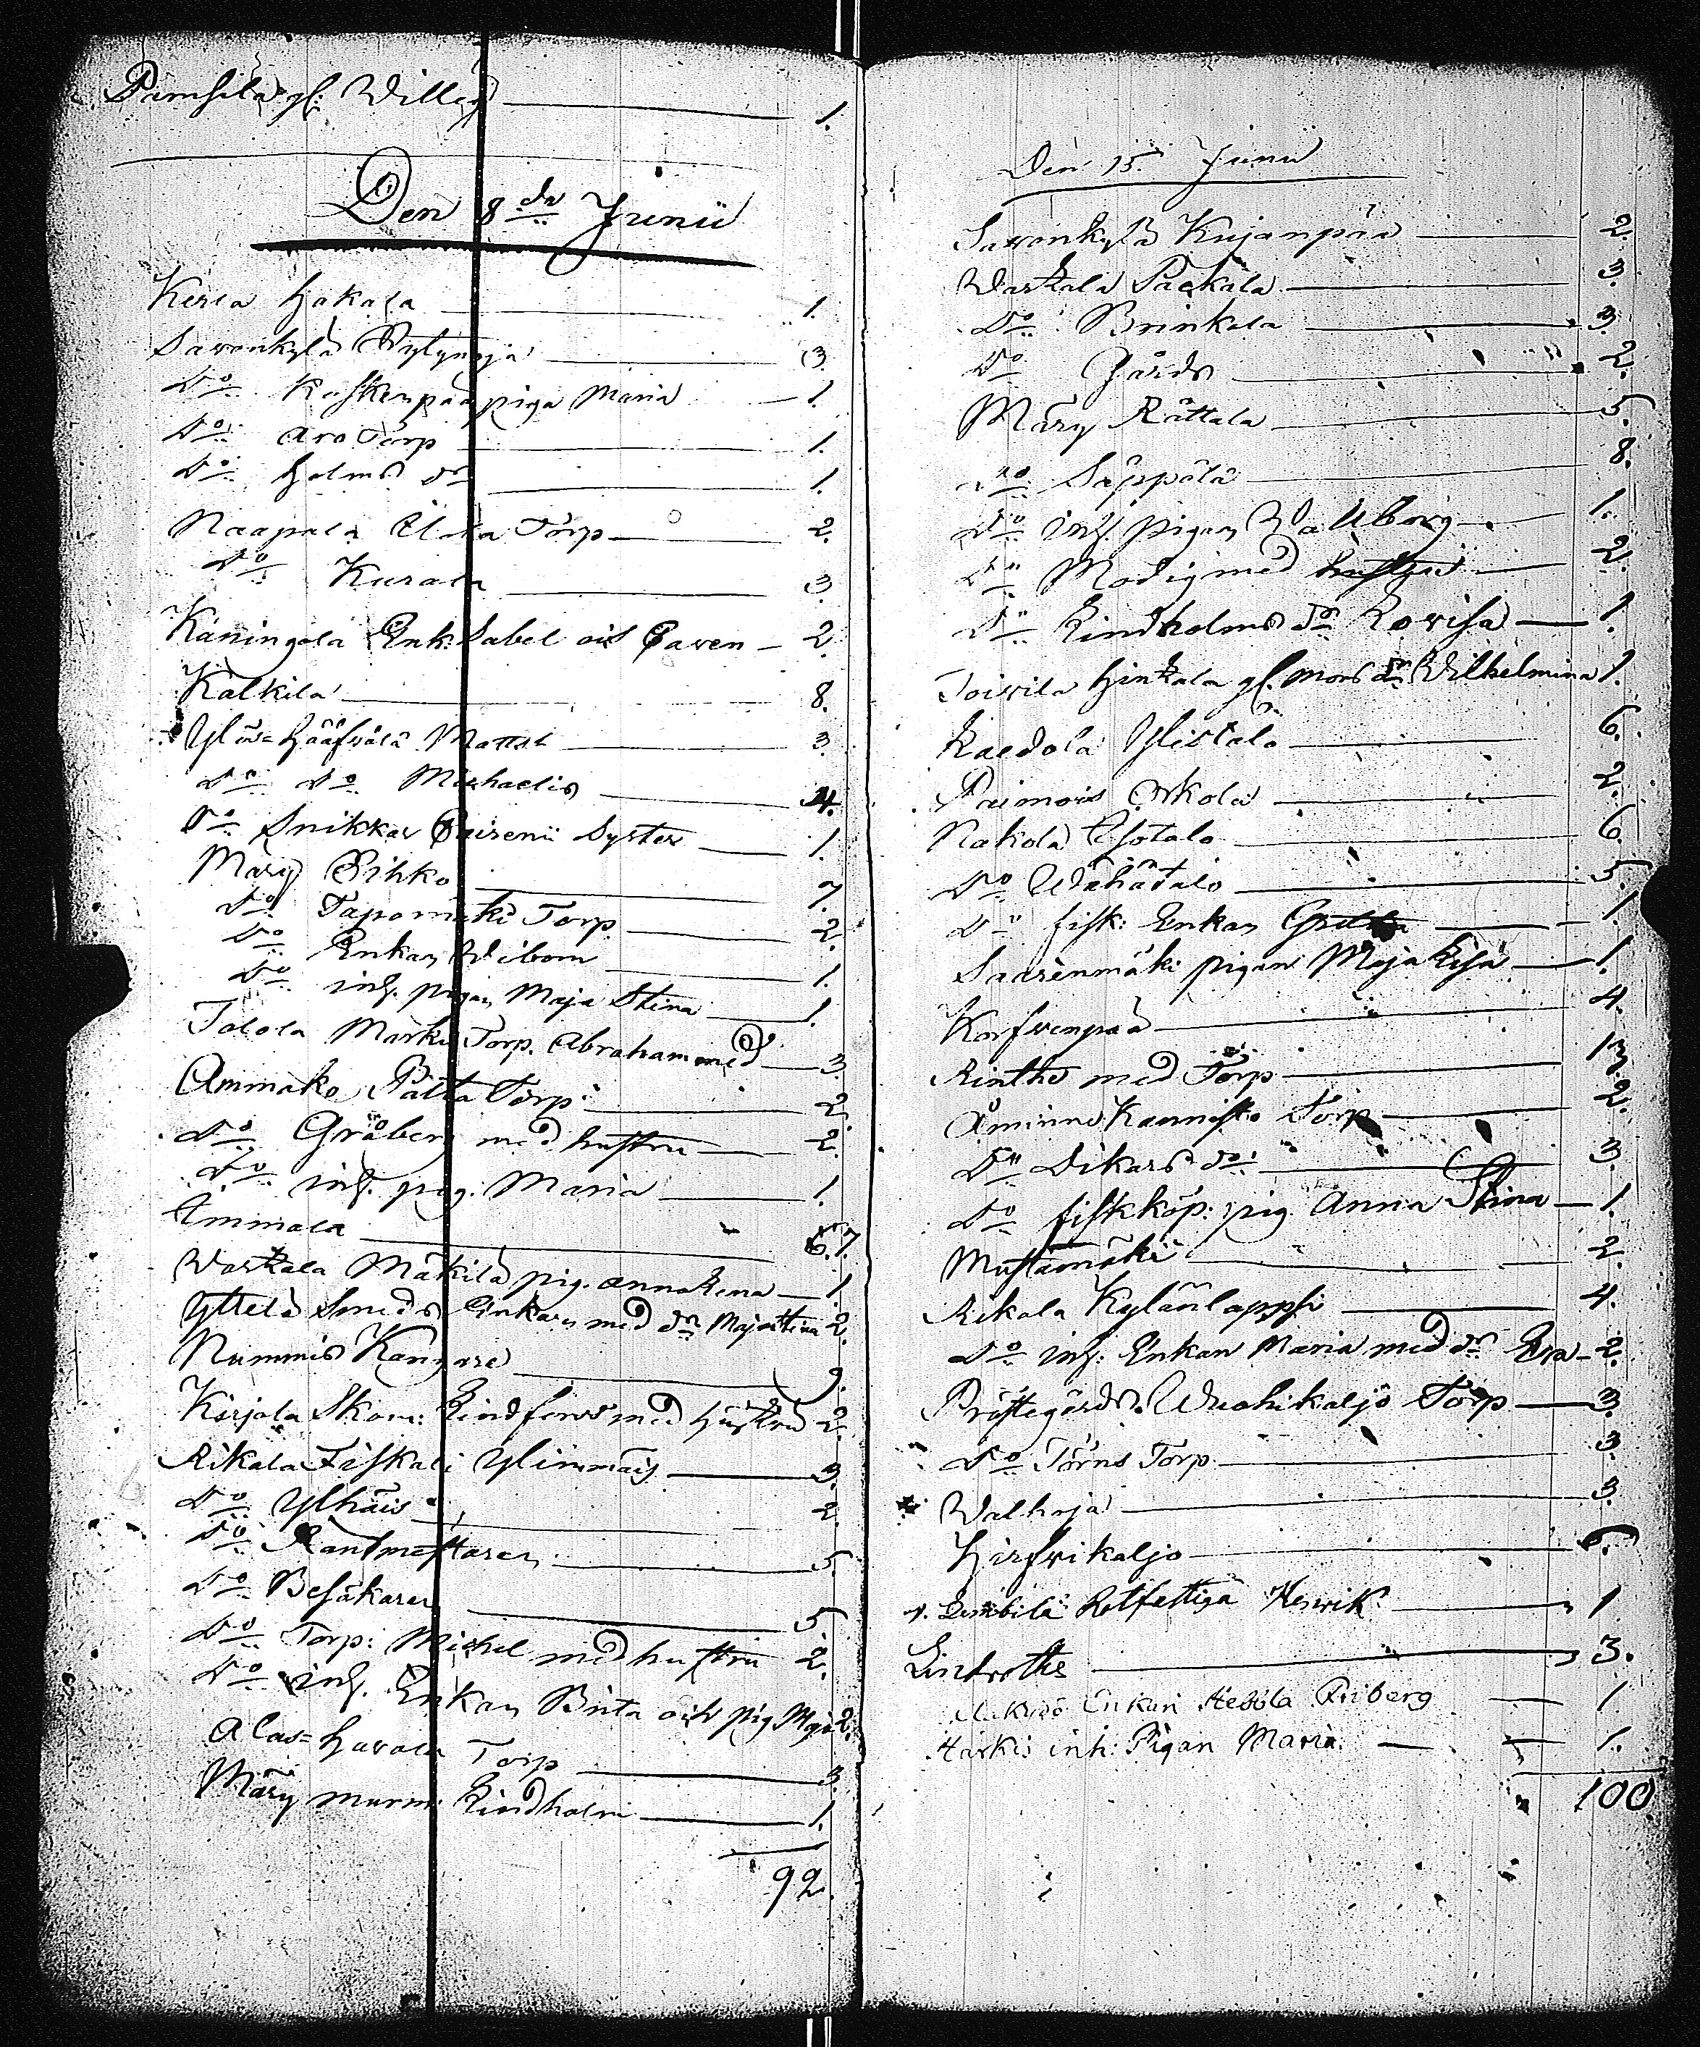 Pimsila gl: Willig 1.
Den 8de Junii
Kerla Hakala 1.
Savonkylä Pytynoja 3
Do Koskenpää piga Maria 1.
Do Aro Torp 1.
Do Holms do 1.
Naapala Torp 2.
Do Kurala 3.
Käningola Enk: Sabel och Paven 2.
Kalkila 8.
Ylös=Hääfvälä Matts 3.
Do Do Michaelis 4.
Do Snikkar Syster 1.
Märy Pihko 7.
Do Tapomäki Torp 2.
Do Enkan Wibom 1.
Do inh. pigan Maja Stina 1.
Jolola Markis Torp. Abraham med 3.
Ammako Pätta Torp 2.
Do Gråberg med hustru 2.
Do inh. pig. Maria 1.
Immala 6. 7.
Waskala Mäkilä pig. Anna Lena 1.
Yttelä Smeds Enkan med dr Maja Stina 2.
Nummis Kangare 9.
Kirjola Skom: Lindfors med hustru 2.
Rikala Fiskali Ylimmäis 3.
Do Ylhäis 2.
Do Rantmästaren 5.
Do Besökaren 5.
Do Torp: Michel med hustru 2.
Do inh. Enkan Brita och pig Maja 2.
Alas=Havala Torp 3.
Märy murm: Lindholm 1.
92.
Den 15. Junii
Savonkylä Kujanpää 2.
Waskala Packala 3.
Do Brinkala 3.
Do Gårds 2.
Märy Rättala 5.
Do Säppälä 8.
Do inh. pigan Wallborg 1.
Do Modig med hustru 2.
Do Lindholms dr Lovisa 1.
Toivila Hinkala gl. mors dr Wilhelmina 1.
Kaedola Ylistalo 6.
Raimois Orkola 2.
Nakola Isotalo 6.
Do Wähätalo 5.
Do fisk: Enkan Gretha 1.
Saarenmäki pigan Maja Lisa 1.
Korfvenpää 4.
Rinthe med Torp 13.
Åminne Kannisto Torp 2.
Do Dikars do 3.
Do fiskköp: pig Anna Stina 1.
Mustamäki 2.
Rikala Kylänlappsi 4.
Do inh: Enkan Maria med dr Eva 2.
Prästegårds Wuohikaljo Torp 3.
Do Törns Torp 3.
Walhoja 3.
Hirfvikaljo 6.
Rotfattiga Henrik 1
Lindroths 3.
Enkan Hedda Friberg 1
Härkis inh: Pigan Maria 1.
100